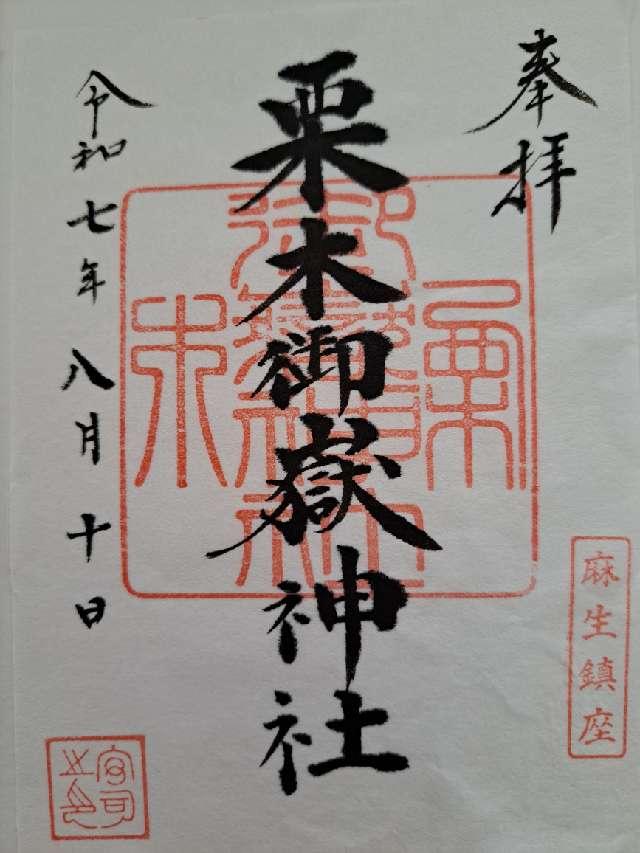 奉拝
栗木御嶽神社
令和七年八月十日
麻生鎮座
宮司之印